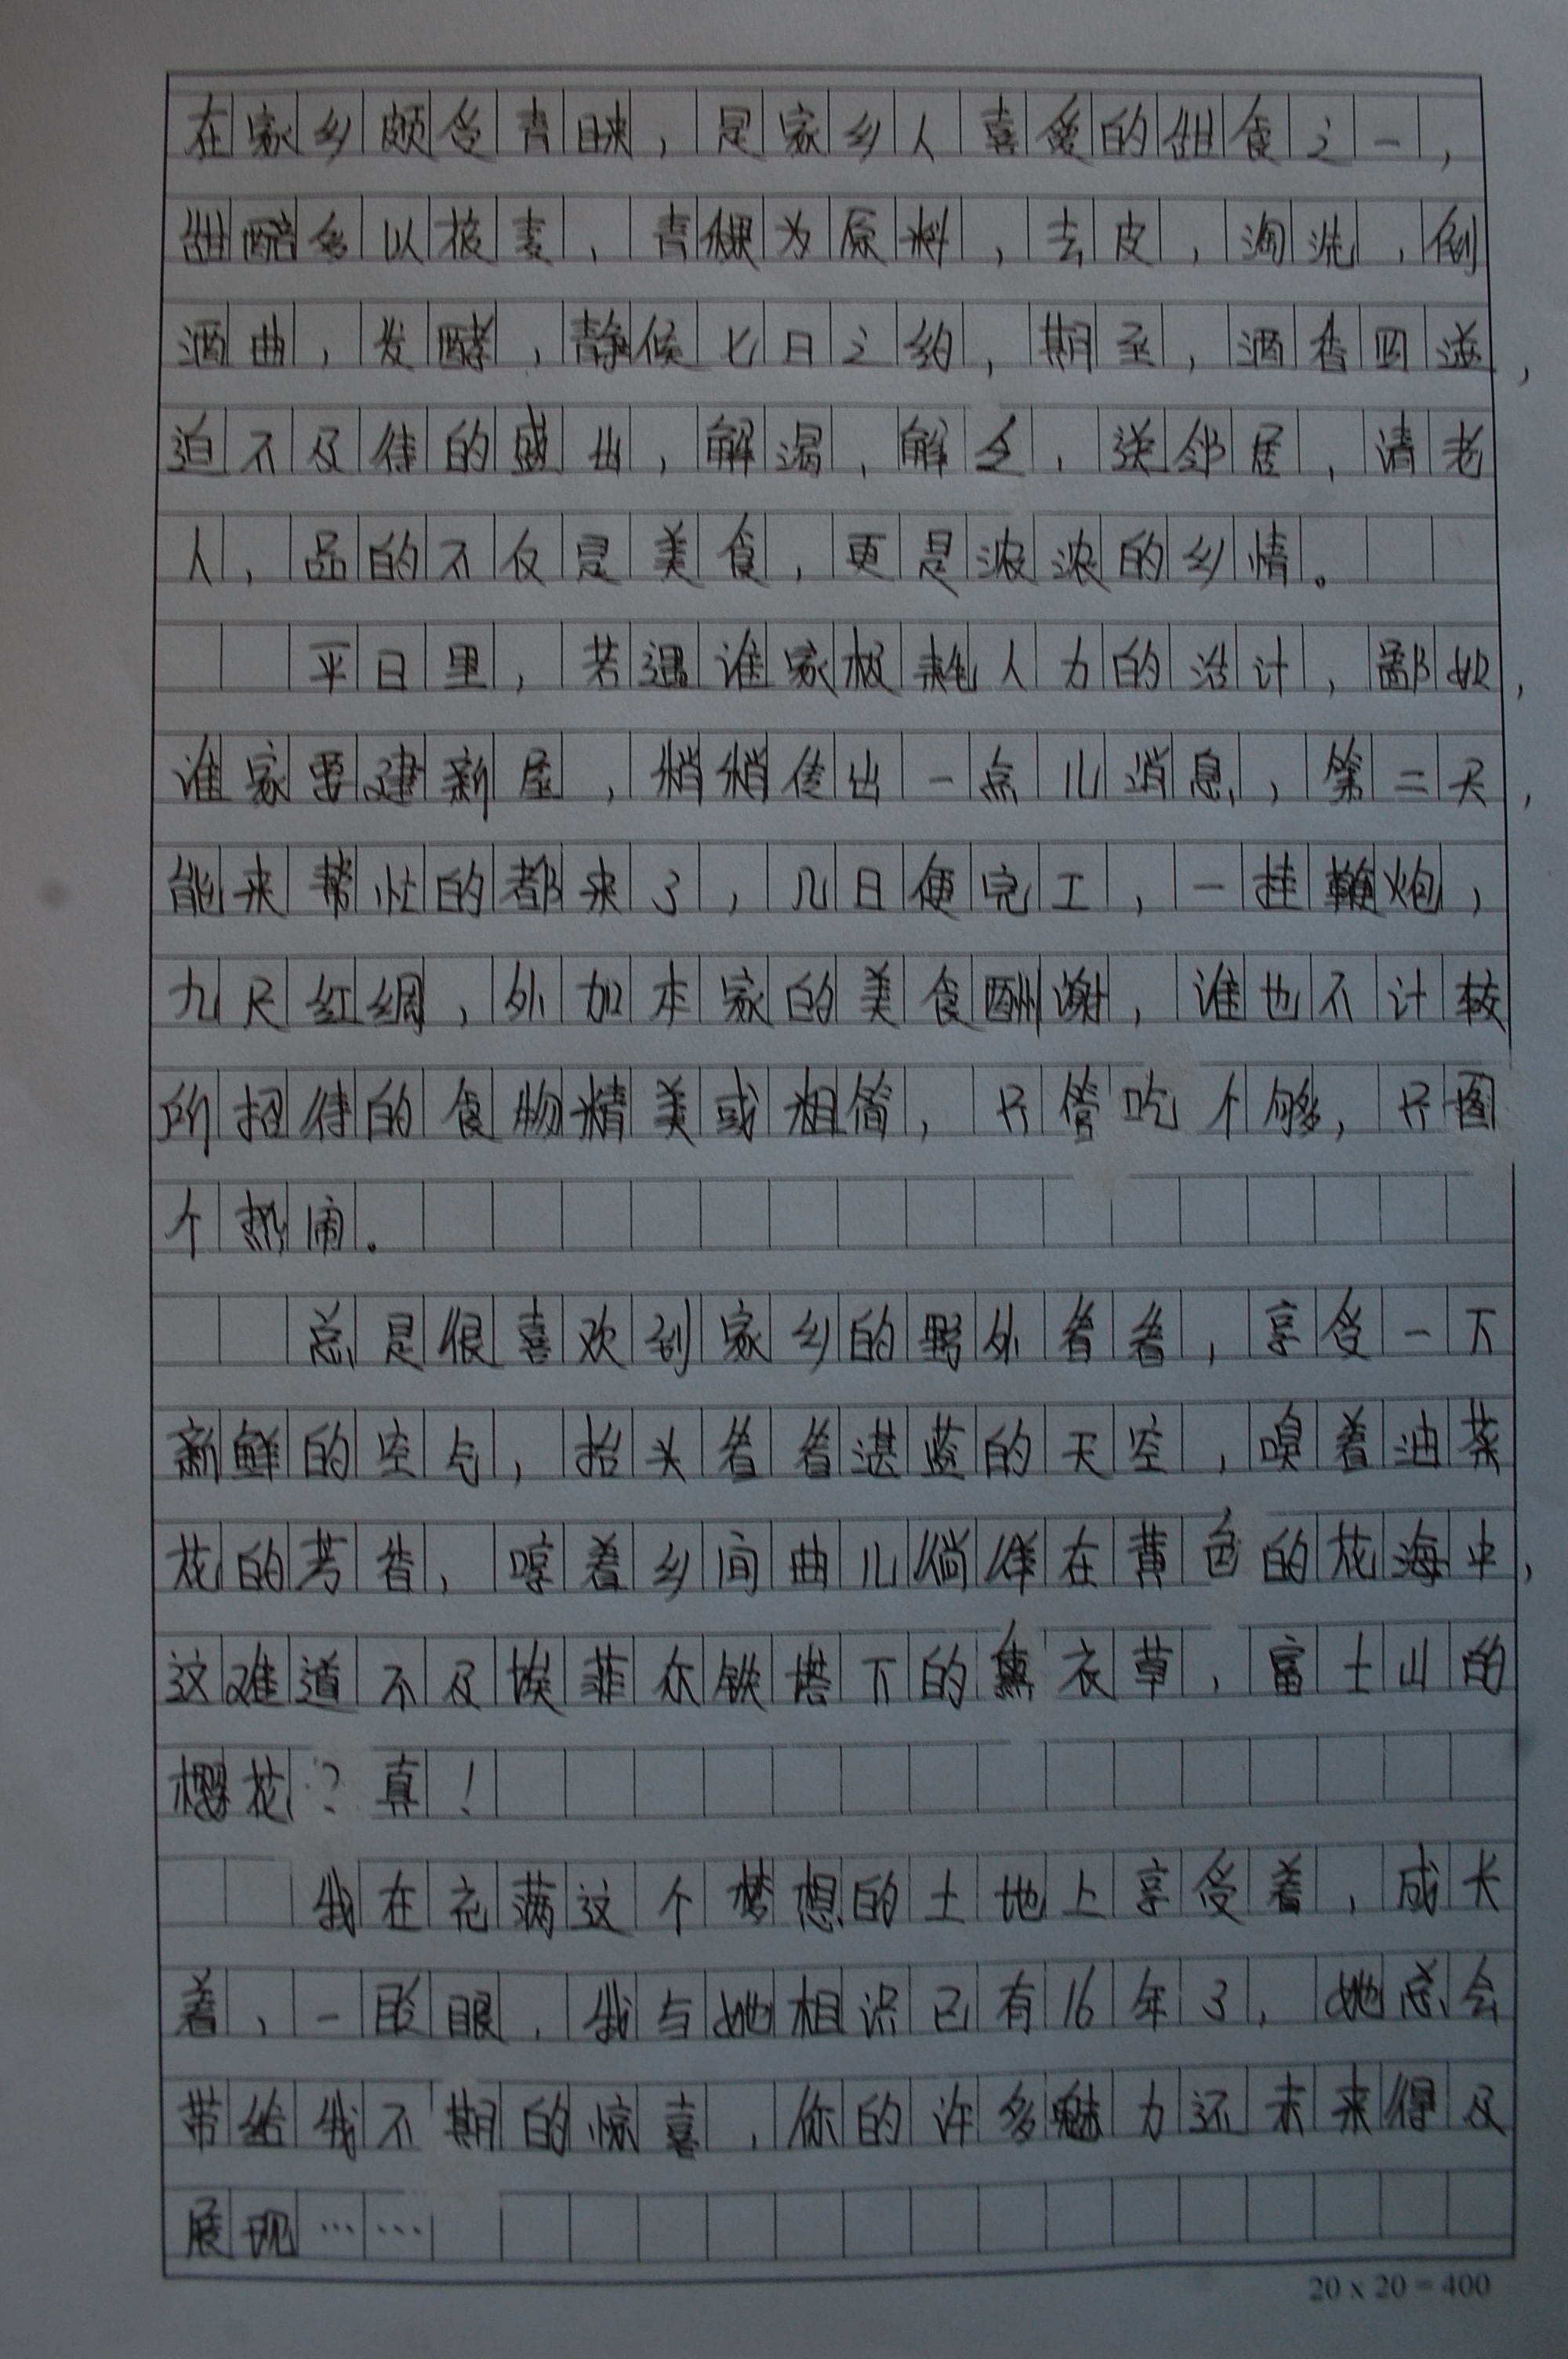 在家乡颇受青睐，是家乡人喜爱的甜食之一，
甜醅多以莜麦、青稞为原料，去皮，淘洗，倒
酒曲，发酵，静候七日之约，期至，酒香四溢，
迫不及待的盛出，解渴，解乏，送邻居，请老
人，品的不仅是美食，更是浓浓的乡情。
平日里，若遇谁家极耗人力的活计，譬如，
谁家要建新屋，悄悄传出一点儿消息，第二天，
能来帮忙的都来了，几日便完工，一挂鞭炮，
九尺红绸，外加本家的美食酬谢，谁也不计较
所招待的食物精美或粗简，只管吃个够，只图
个热闹。
总是很喜欢到家乡的野外看看，享受一下
新鲜的空气，抬头看看湛蓝的天空，嗅着油菜
花的芳香，哼着乡间曲儿徜徉在黄色的花海中，
这难道不及埃菲尔铁塔下的薰衣草，富士山的
樱花？真！
我在充满这个梦想的土地上享受着，成长
着，一眨眼，我与她相识已有16年了，她总会
带给我不期的惊喜，你的许多魅力还未来得及
展现……
20 x 20 = 400